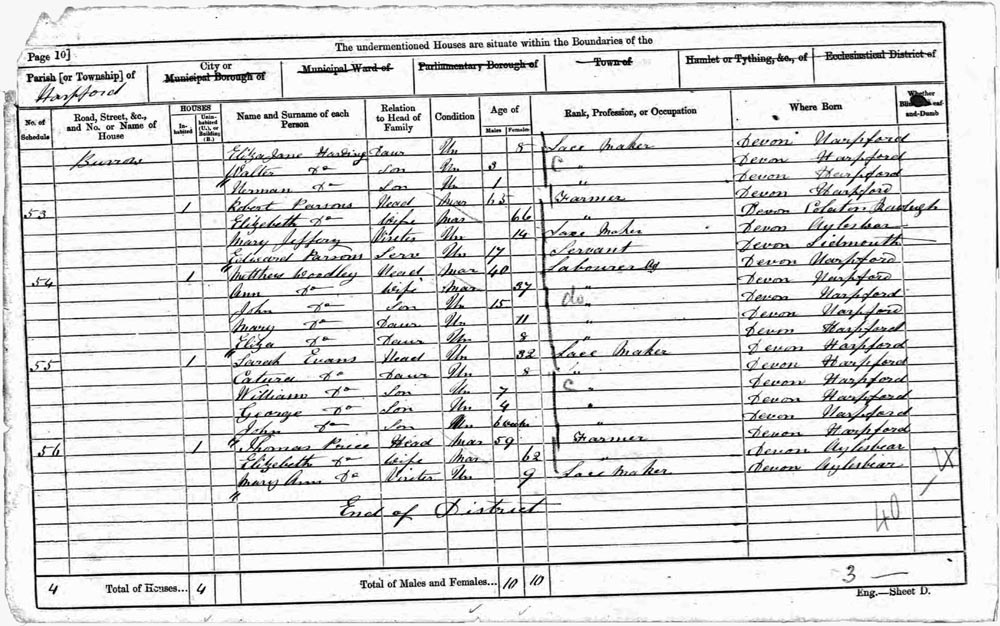 Page 10]
The undermentioned Houses are situate within the Boundaries of the
Parish [or Township] of
Harpford
City or
Municipal Borough of
Municipal Ward of
Parliamentary Borough of
Town of
Hamlet or Tything, &c., of
Ecclesiastical District of
No. of Schedule
Road, Street, &c., and No. or Name of House
HOUSES
Inhabited
Uninhabited (U.), or Building (B.)
Name and Surname of each Person
Relation to Head of Family
Condition
Age of
Males
Females
Rank, Profession, or Occupation
Where Born
Whether Blind, or Deaf-and-Dumb
Burrow Eliza Jane Harding Daur Un 8 Lace Maker Devon Harpford
Walter Do Son Un 3 " Devon Harpford
Herman Do Son Un 1 " Devon Harpford
53 1 Robert Parsons Head Mar 65 Farmer Devon Harpford
Elizabeth Do Wife Mar 66 " Devon Colaton Rawleigh
Mary Jeffery Visiter Un 14 Lace Maker Devon Aylesbear
Edward Parsons Serv Un 17 Servant Devon Sidmouth
54 1 Matthew Woodley Head Mar 40 Labourer Ag Devon Harpford
Ann Do Wife Mar 37 " Devon Harpford
John Do Son Un 15 do Devon Harpford
Mary Do Daur Un 11 " Devon Harpford
Eliza Do Daur Un 8 " Devon Harpford
55 1 Sarah Evans Head Un 32 Lace Maker Devon Harpford
Do Daur Un 8 " Devon Harpford
William Do Son Un 7 C " Devon Harpford
George Do Son Un 4 " Devon Harpford
John Do Son Un 6 weeks " Devon Harpford
56 1 Thomas Price Head Mar 59 Farmer Devon Harpford
Elizabeth Do Wife Mar 62 " Devon Aylesbear
Mary Ann Do Visiter Un 9 Lace Maker Devon Aylesbear
End of District
40
4 Total of Houses... 4 Total of Males and Females... 10 10
3
Eng.—Sheet D.